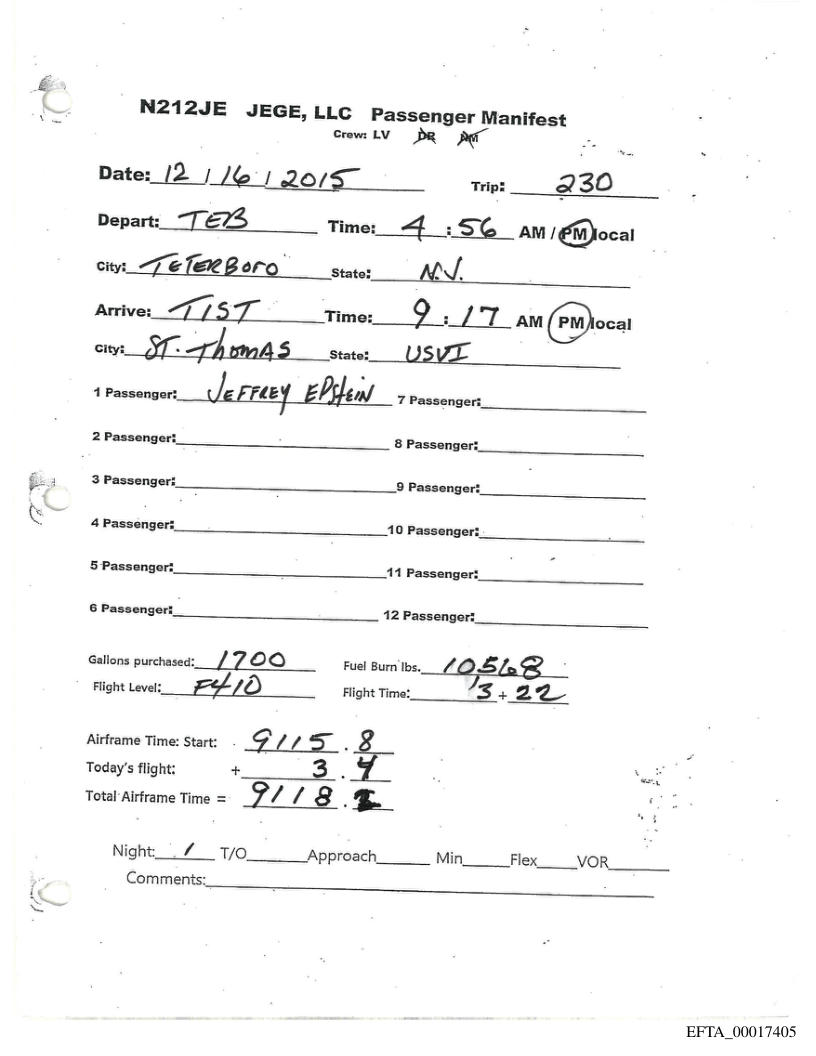 N212JE JEGE, LLC Passenger Manifest
Crew: LV DR AM
Date: 12 / 16 / 2015 Trip: 230
Depart: TEB Time: 4 : 56 AM / PM local
City: TETERBORO State: N.J.
Arrive: TIST Time: 9 : 17 AM / PM local
City: ST. THOMAS State: USVI
1 Passenger: JEFFREY EPSTEIN 7 Passenger:
2 Passenger: 8 Passenger:
3 Passenger: 9 Passenger:
4 Passenger: 10 Passenger:
5 Passenger: 11 Passenger:
6 Passenger: 12 Passenger:
Gallons purchased: 1700 Fuel Burn lbs. 10568
Flight Level: F410 Flight Time: 3 + 22
Airframe Time: Start: 9115 . 8
Today's flight: + 3 . 4
Total Airframe Time = 9118 .
Night: 1 T/O Approach Min Flex VOR
Comments:
EFTA_00017405